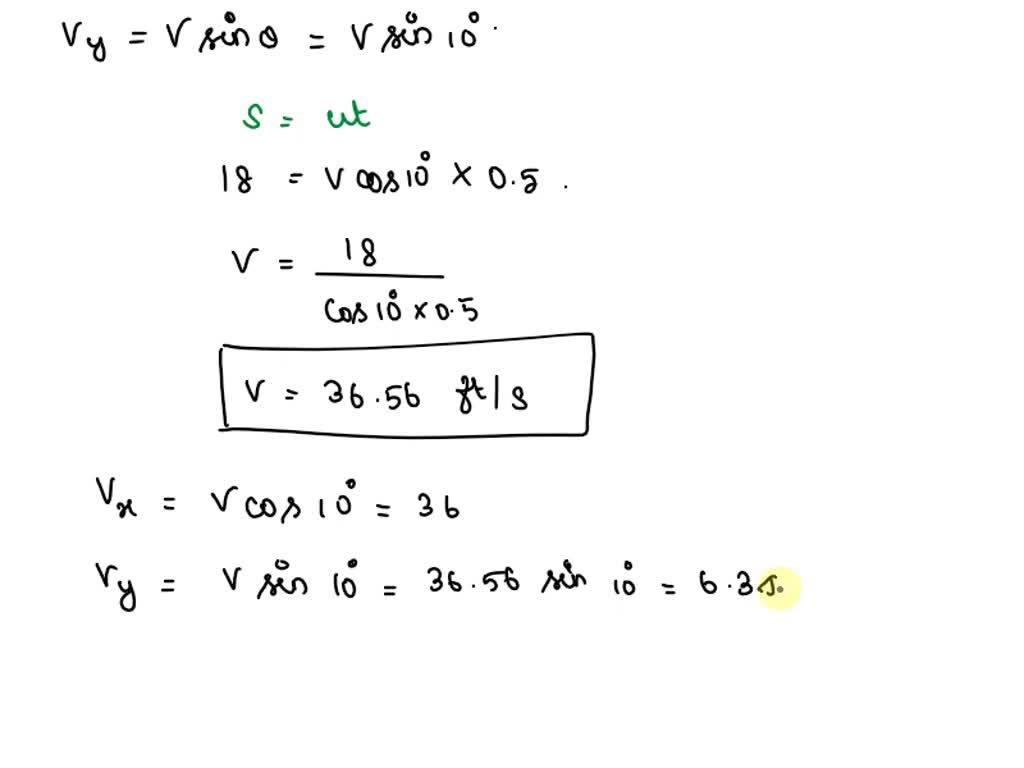 Vy = V sinθ = V sin 10°.
S = ut
18 = V cos 10° × 0.5 .
V = 18 / cos 10° × 0.5
V = 36.56 ft/s
Vx = V cos 10° = 36
Vy = V sin 10° = 36.56 sin 10° = 6.3